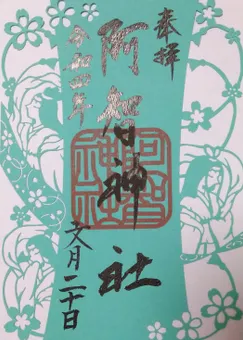 奉拝
阿智神社
令和四年
文月二十日
阿智
神社